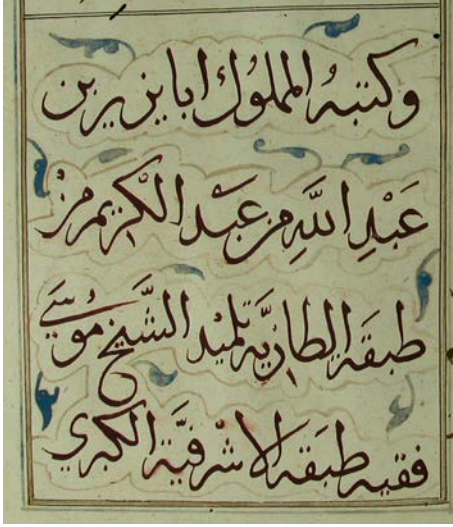 وكتبهُ المملوك ابايزيد بن
عَبْدِ اللَّهِ من عَبْد الكريم من
طبقة الطازيَّة تلميذ الشَّيخ مُوسَى
فقيه طَبَقة الاشرفيَّة الكبري